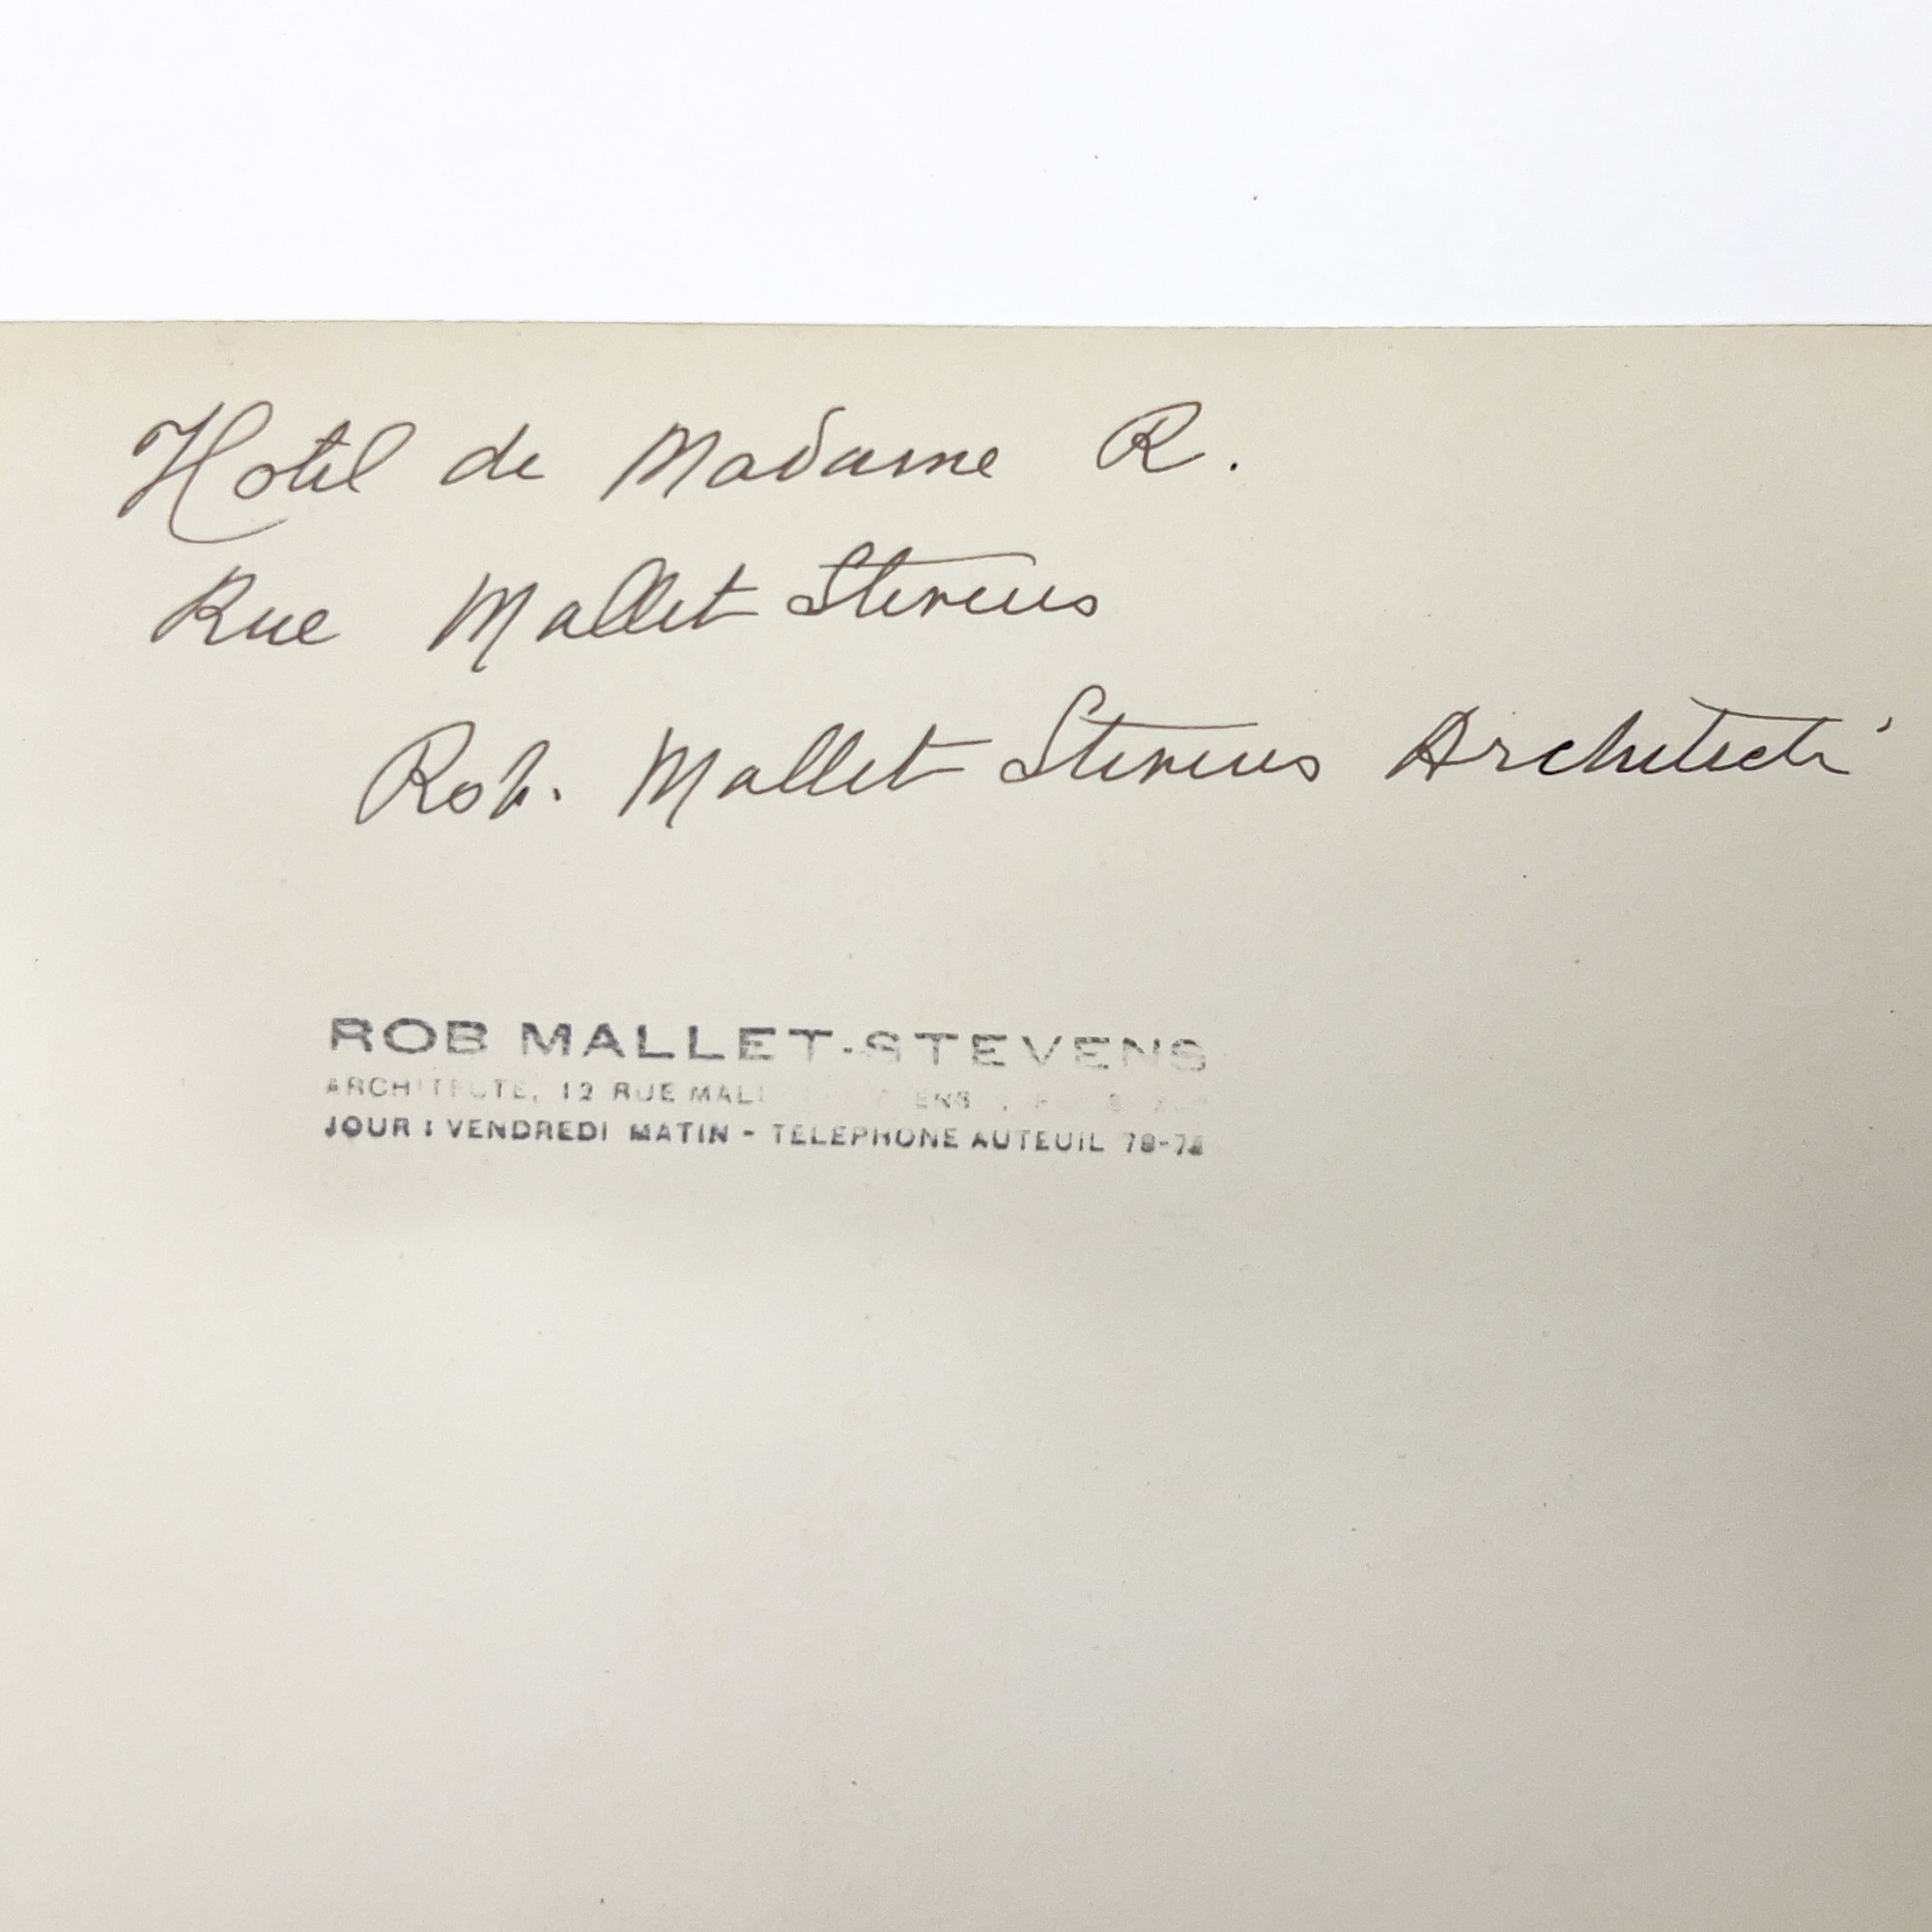 Hotel de Madame R.
Rue Mallet Stevens
Rob. Mallet Stevens Architecte
ROB MALLET-STEVENS
ARCHITECTE, 12 RUE
JOUR : VENDREDI MATIN - TELEPHONE AUTEUIL